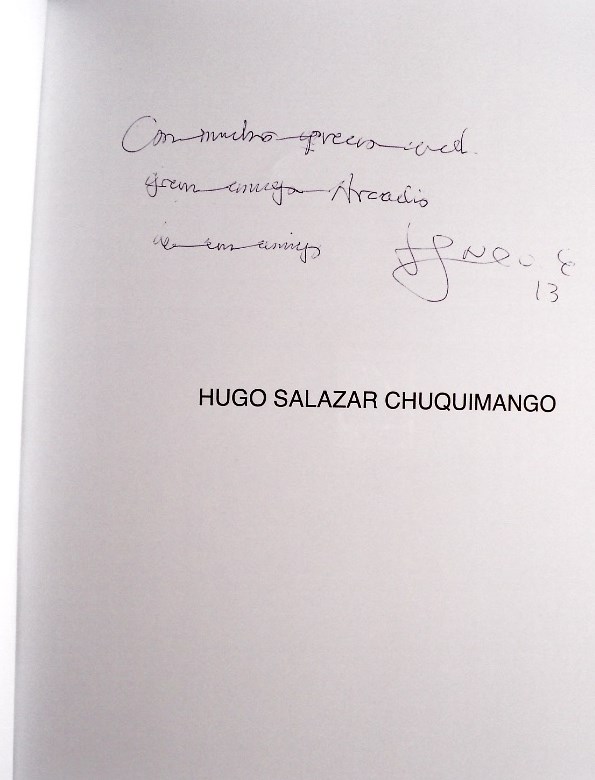 Con mucho aprecio al
gran amigo Arcadio
de un amigo
13
HUGO SALAZAR CHUQUIMANGO